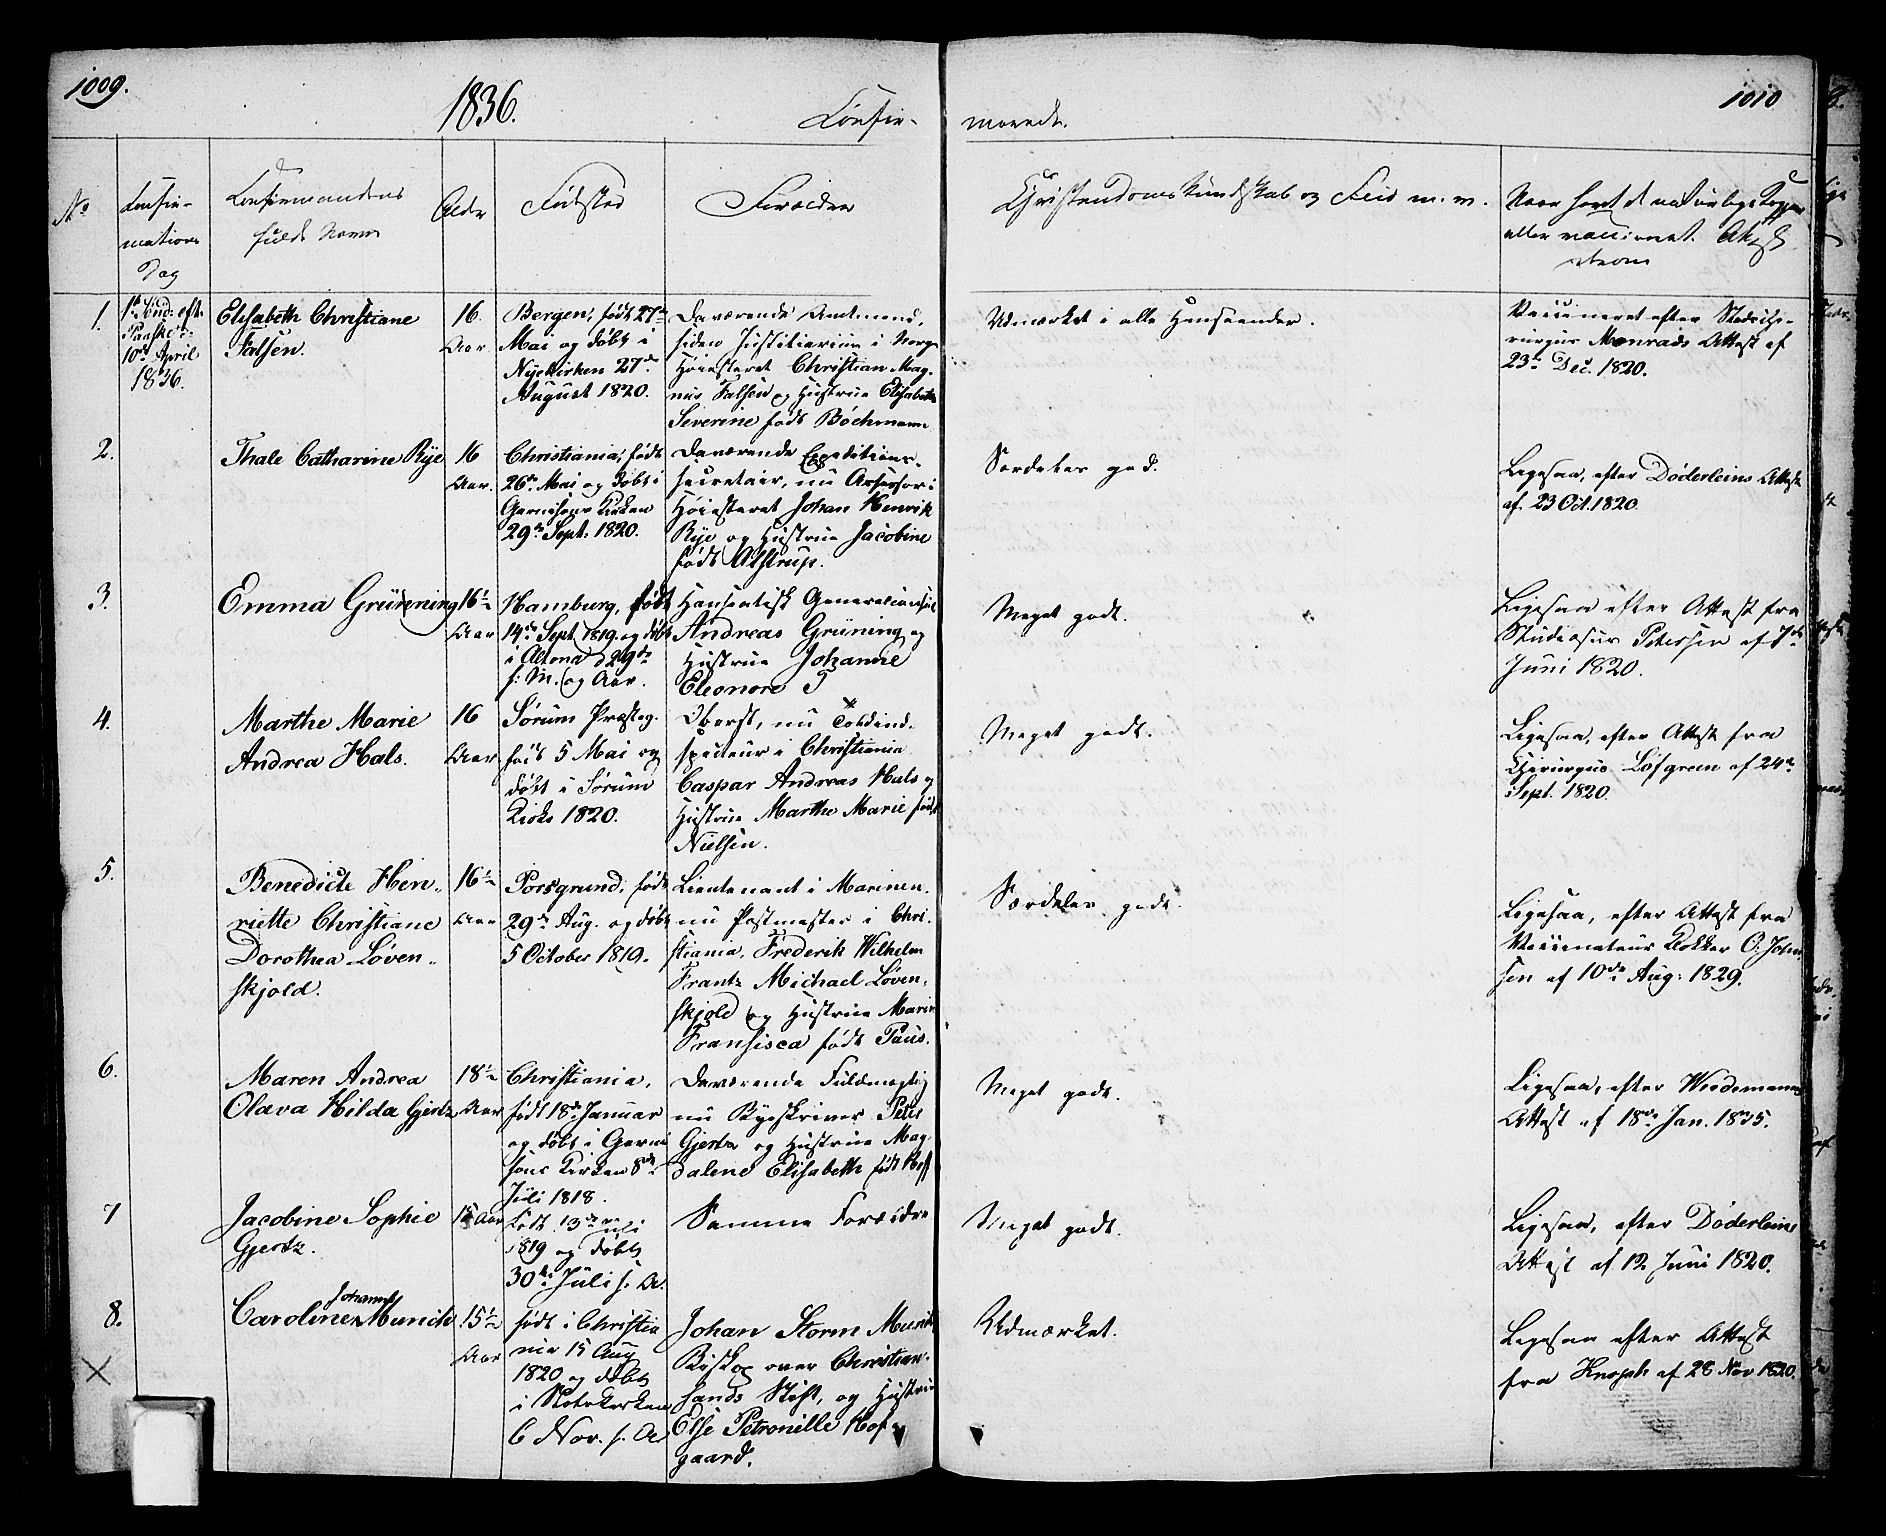 1009.
1836.
Confir-
marede.
1010
No
Confir-
mations
Dag
Confirmandens
fulde Navn
Alder
Fødsted
Forældre
Christendomskundskab og Flid m. m.
Naar havt de naturlige Kopper
eller vaccineret. Attest
derom
1.
1ste Sönd: eft.
Paaske:
10de April
1836.
Elisabeth Christiane
Falsen.
16.
Aar
Bergen, født 27de
Mai og døbt i
Nyekirken 27de
August 1820.
Daværende Amtmand,
siden Justitiarius i Norges
Høiesteret Christian Mag-
nus Falsen og Hustrue Elisabeth
Severine født Böchmann
Udmærket i alle Henseender.
Vaccineret efter Stadschi-
rurgus Monrads Attest af
23de Dec. 1820.
2.
Thale Catharine Rye
16
Aar.
Christiania, født
26de Mai og døbt i
Garnisons Kirken
29de Sept. 1820.
Daværende Expeditions-
secretair, nu Assessor i
Høiesteret Johan Henrik
Rye og Hustrue Jacobine
født Alstrup.
Særdeles god.
Ligesaa, efter Døderleins Attest
af 23 Oct. 1820.
3.
Emma Grüning
16½
Aar
Hamburg, født
14de Sept 1819 og døbt
i Altona d 29de
s. M. og Aar.
Hanseatisk Generalconsul
Andreas Grüning og
Hustrue Johanne
Eleonore
Meget godt.
Ligesaa efter Attest fra
Studiosus Petersen af 7de
Juni 1820.
4.
Marthe Marie
Andrea Hals.
16
Aar
Sörum Præsteg.
født 5 Mai og
døbt i Sörum
Kirke 1820.
Oberst, nu Toldind-
specteur i Christiania
Caspar Andreas Hals og
Hustrue Marthe Marie født
Nielsen.
Meget godt.
Ligesaa, efter Attest fra
Chirurgus Löfgreen af 24de
Sept. 1820.
5.
Benedicte Hen-
riette Christiane
Dorothea Løven-
skjold.
16½
Aar
Porsgrund, født
29de Aug. og døbt
5 October 1819.
Lieutenant i Marinen,
nu Postmester i Chri-
stiania, Frederik Wilhelm
Frantz Michael Løven-
skjold og Hustrue Marie
Fransisca født Paus.
Særdeles godt.
Ligesaa, efter Attest fra
Vaccinateur Klokker O. John
sen af 10de Aug: 1829.
6.
Maren Andrea
Olava Hilda Gjertz
18½
Aar
Christiania,
født 18de Januar
og døbt i Garni
sons Kirken 8de
Juli 1818.
Daværende Fuldmægtig
nu Byeskriver Peter
Gjertz og Hustrue Mag-
dalene Elisabeth født Hoff
Meget godt.
Ligesaa, efter Weedemanns
Attest af 18de Jan. 1835.
7
Jacobine Sophie
Gjertz.
Aar
født 13de Juli
1819 og døbt
30te Juli s. A.
Samme Forældre
Meget godt.
Ligesaa, efter Døderleins
Attest af 12 Juni 1820.
8.
Johanne
Caroline Munch
15½
Aar
født i Christia
nia 15 Aug
1820 og døbt
i Slotskirken
6 Nov. s. A
Johan Storm Munch
Biskop over Christian-
sands Stift, og Hustrue
Else Petronille Hof-
gaard.
Udmærket.
Ligesaa efter Attest
fra Knoph af 28 Nov 1820.